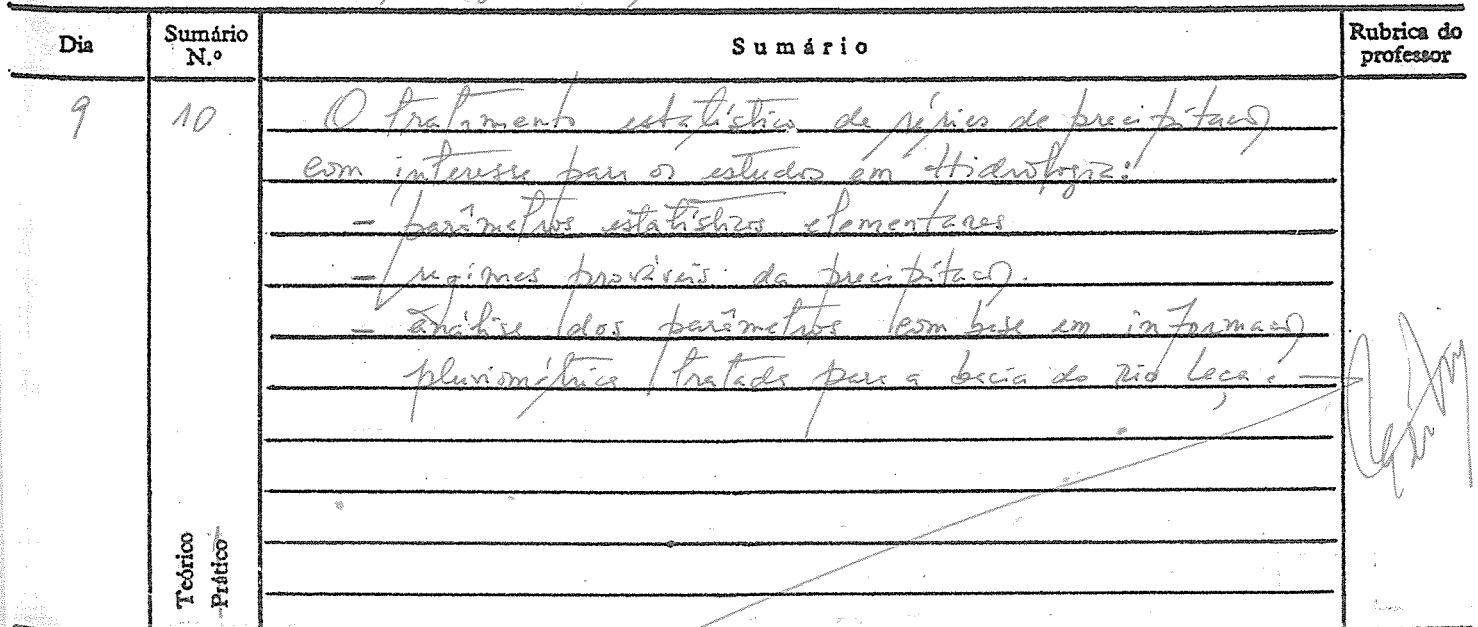 Dia
Sumário N.º
Sumário
Rubrica do professor
9
10
O tratamento estatístico de séries de precipitação
com interesse para os estudos em Hidrologia:
- parâmetros estatísticos elementares
- regimes prováveis da precipitação.
- análise dos parâmetros com base em informação
pluviométrica tratada para a bacia do Rio Leça.
Teórico
Prático